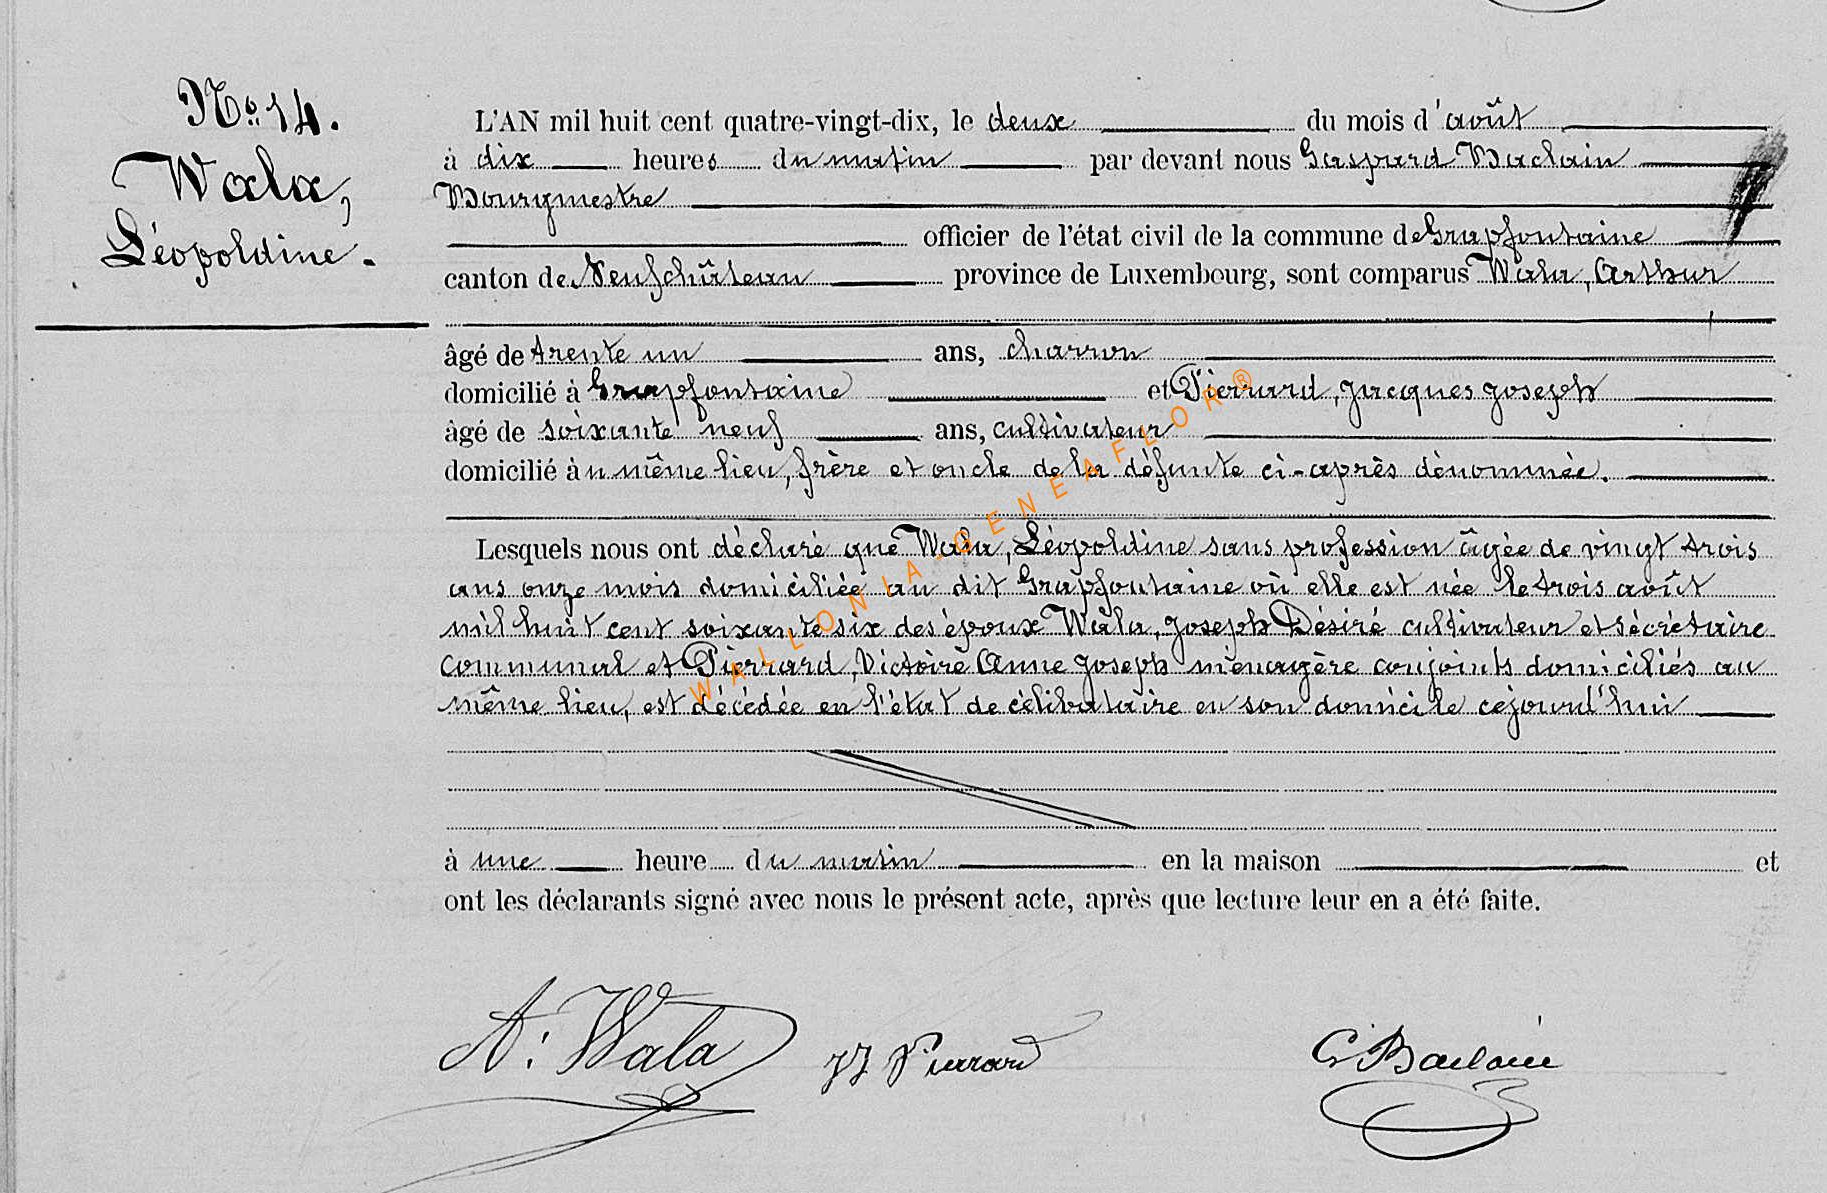 No. 14.
Wala,
Léopoldine.
L'AN mil huit cent quatre-vingt-dix, le deux du mois d'août
à dix heures du matin par devant nous Gaspard Baclain
Bourgmestre
officier de l'état civil de la commune de Grapfontaine
canton de Neufchâteau province de Luxembourg, sont comparus Wala, Arthur
âgé de trente un ans, charron
domicilié à Grapfontaine et Pierrard, Jacques Joseph
âgé de soixante neuf ans, cultivateur
domicilié àu même lieu, frère et oncle de la défunte ci-après dénommée.
Lesquels nous ont déclaré que Wala, Léopoldine sans profession âgée de vingt trois
ans onze mois domiciliée au dit Grapfontaine où elle est née le trois août
mil huit cent soixante six des époux Wala, Joseph Désiré cultivateur et sécrétaire
communal et Pierrard, Victoire Anne Joseph ménagère conjoints domiciliés au
même lieu, est décédée en l'état de célibataire en son domicile cejourd'hui
à une heure du matin en la maison et
ont les déclarants signé avec nous le présent acte, après que lecture leur en a été faite.
A. Wala JJ Pierrard G Baclain
WALLONIA-GENEAFLOR®